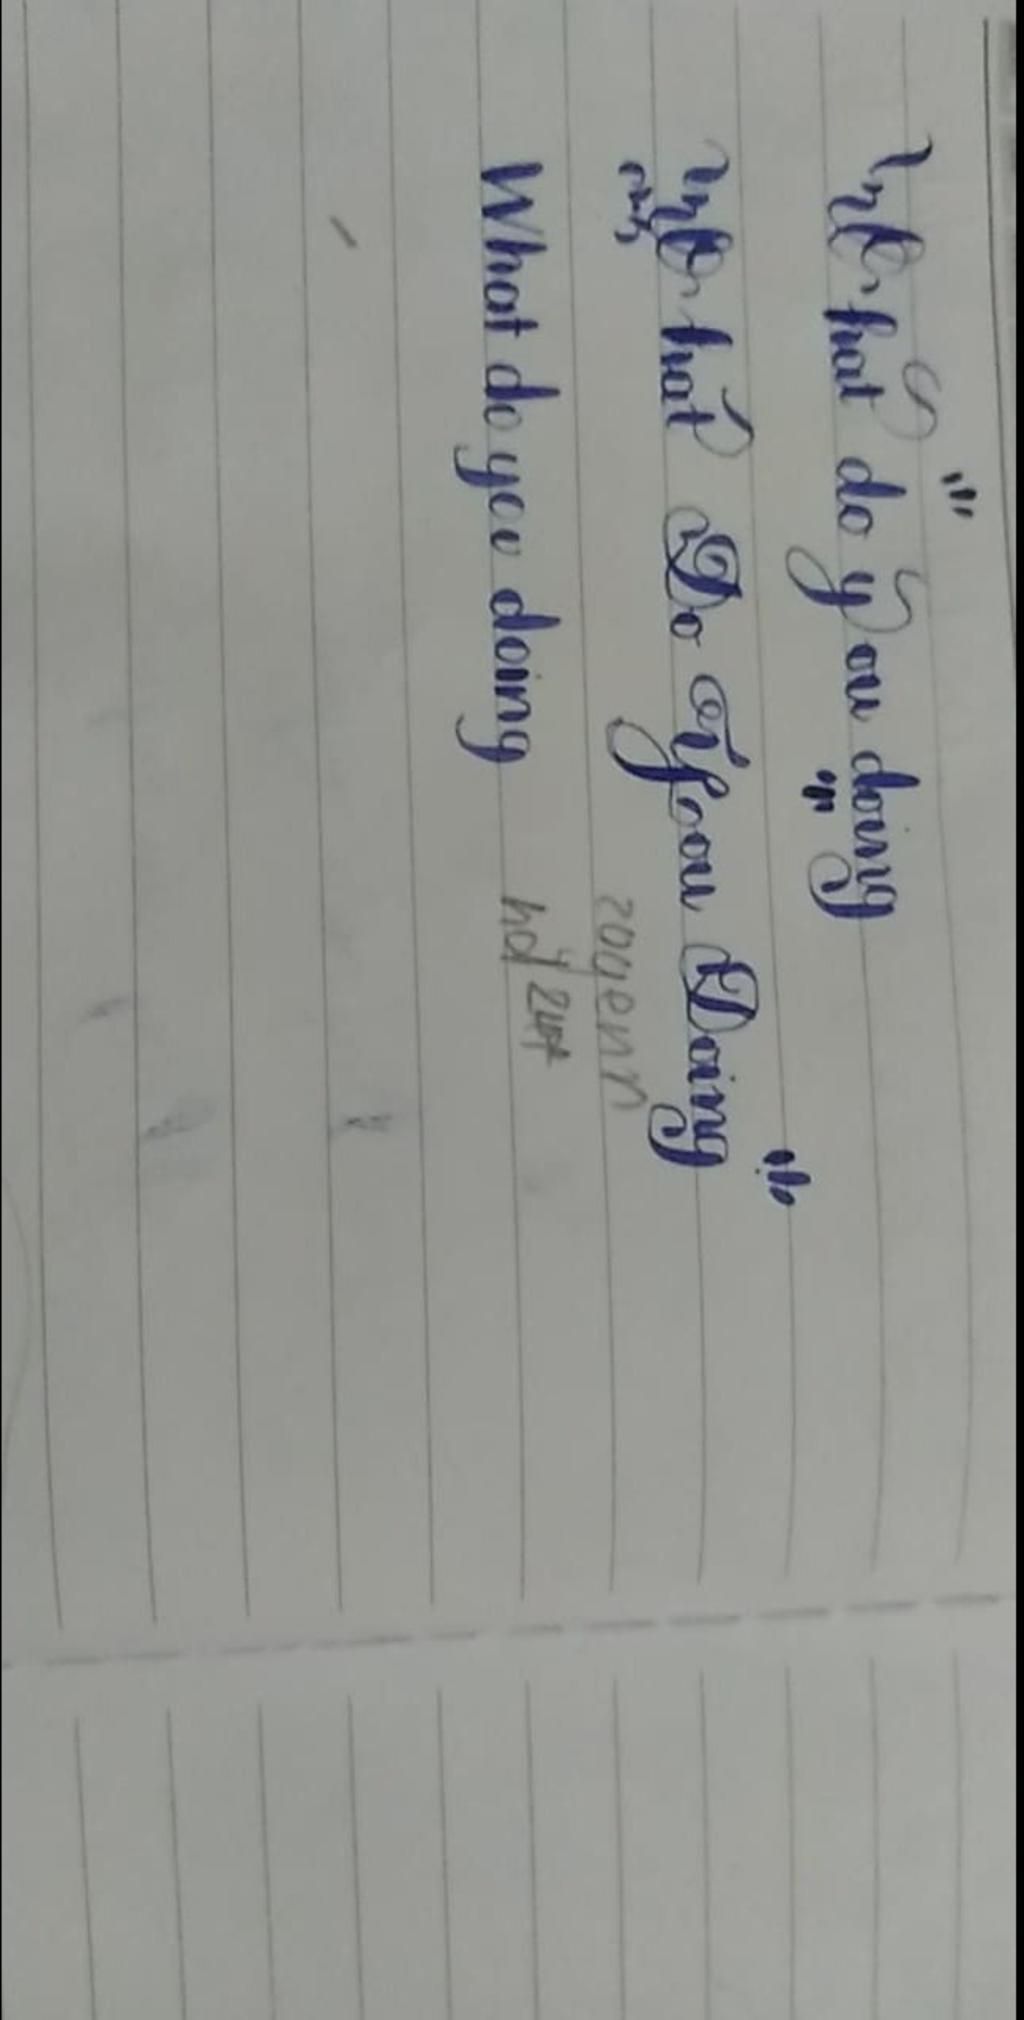 What do you doing
What Do You Doing
What do you doing